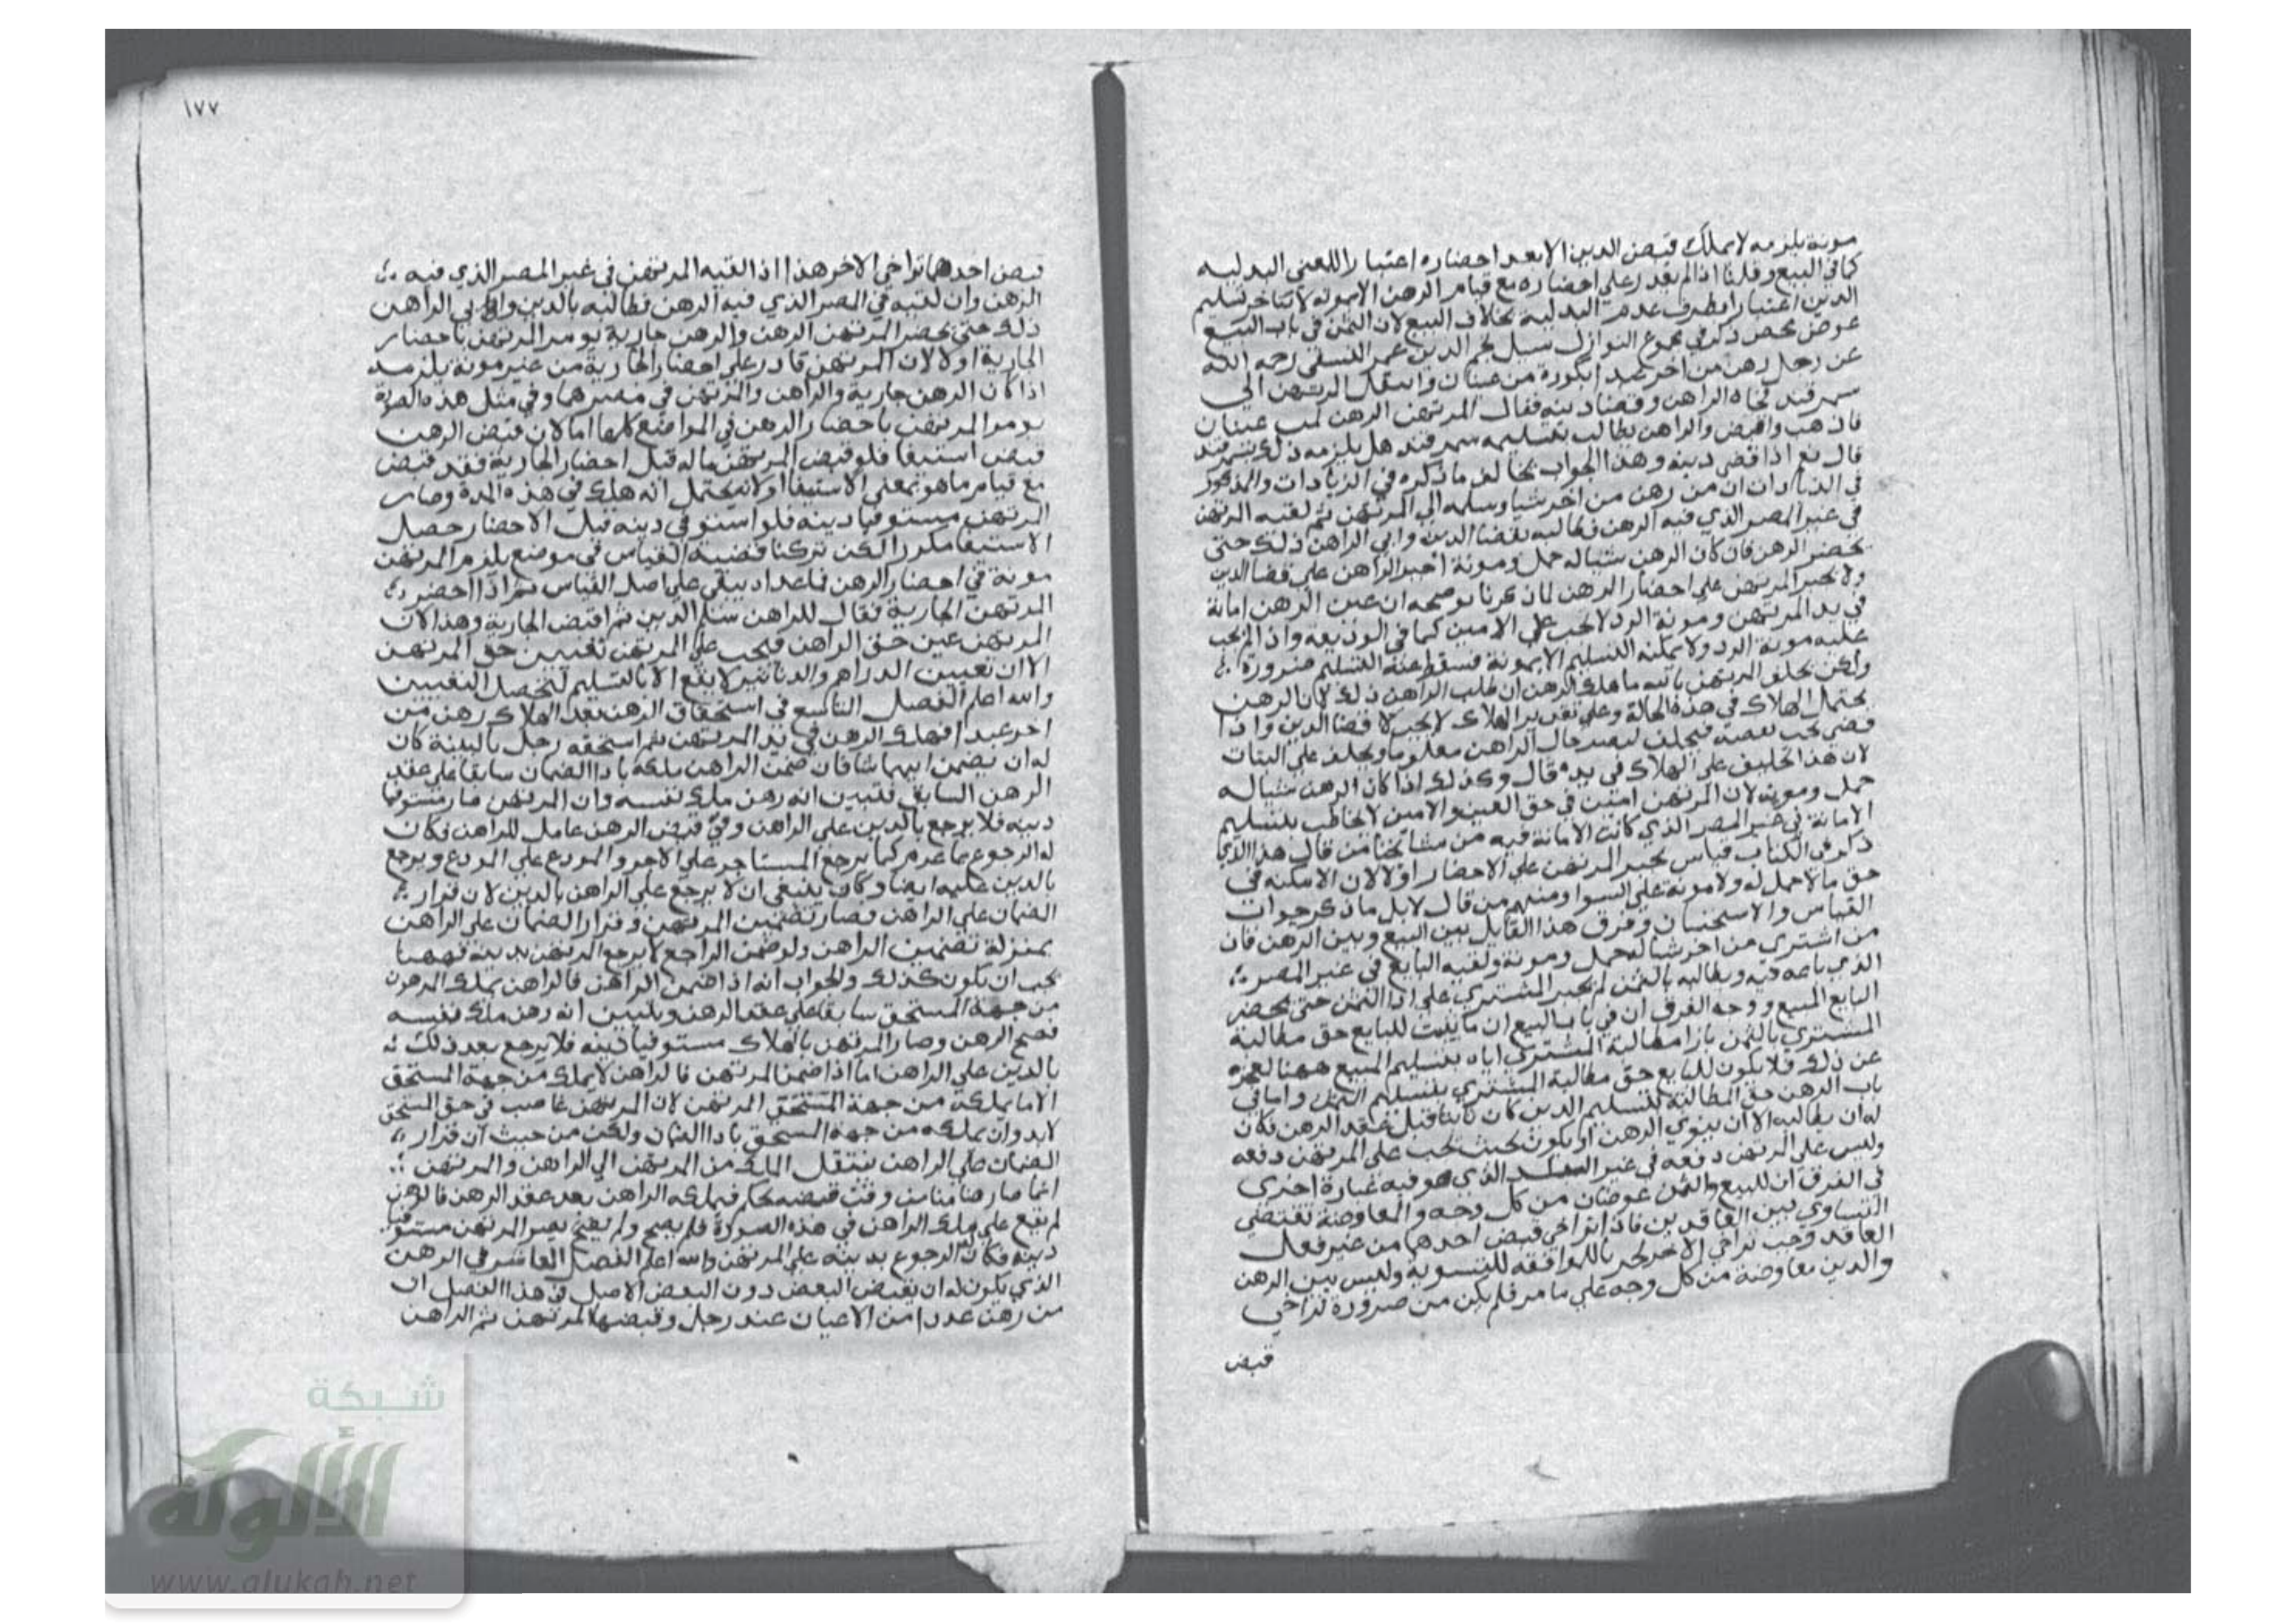 مونة يلزمه لا يملك قبض الدين الا بعد احضاره اعتبارا للمعنى البدليه
كما في البيع وقلنا اذا لم يقدر على احضاره مع قيام الرهن الا بمونه لا يتاخر تسليم
الدين اعتبارا بطرف عدم البدلية بخلاف البيع لان الثمن في باب البيع
عوض محض ذكر في مجموع النوازل سيل نجم الدين عمر النسفي رحمه الله
عن رجل رهن من اخر عبدا بكورة من وانتقل المرتهن الي
سمرقند فجاه الراهن وقضا دينه فقال المرتهن الرهن
فاذهب واقبض والراهن يطالب بتسليمه سمرقند هل يلزمه ذلك بسمرقند
قال نعم اذا قضى دينه وهذا الجواب يخالف ما ذكره في الزيادات والمذكور
في الزيادات ان من رهن من اخر شيا وسلمه الي المرتهن ثم لقيه المرتهن
في غير المصر الذي فيه الرهن فطالبه بقضا الدين وابي الراهن ذلك حتى
يحضر الرهن فان كان الرهن شيا له حمل ومونة اجبر الراهن على قضا الدين
ولا يجبر المرتهن على احضار الرهن لما ذكرنا يوضحه ان عين الرهن امانة
في يد المرتهن ومونة الرد لا تجب على الامين كما في الوديعة واذا لم يجب
عليه مونة الرد ولا يمكنه التسليم الا بمونة فسقط عنه التسليم ضرورة
ولكن يحلف المرتهن بالله ما هلك الرهن ان طلب الراهن ذلك لان الرهن
يحتمل الهلاك في هذه الحالة وعلى تقدير الهلاك لا يجب قضا الدين واذا
فيحلف ليصير حال الراهن معلوما ويحلف على البتات
لان هذا تحليف على الهلاك في يده قال وكذلك اذا كان الرهن شيا له
حمل ومونه لان المرتهن امين في حق العين والامين لا يخاطب بتسليم
الامانة في غير المصر الذي كانت الامانة فيه من مشايخنا من قال هذا الذي
ذكر في الكتاب قياس يجبر المرتهن على الاحضار اولا لان الامكنه في
حق ما لا حمل له ولا مونة على السوا ومنهم من قال لا بل ما ذكر جواب
القياس والاستحسان وفرق هذا القايل بين البيع وبين الرهن فان
من اشترى من اخر شيا له حمل ومونة ولقيه البايع في غير المصر
الذي باعه فيه وطالبه بالثمن لم يجبر المشتري على ادا الثمن حتى يحضر
البايع المبيع ووجه الفرق ان في باب البيع ان ما يثبت للبايع حق مطالبة
المشتري بالثمن بازا مطالبة المشتري اياه بتسليم المبيع ههنا لعجزه
عن ذلك فلا يكون للبايع حق مطالبة المشتري بتسليم الثمن واما في
باب الرهن حق المطالبة لتسليم الدين كان ثابتا قبل عقد الرهن فكان
له ان يطالبه الا ان ينوي الرهن او يكون بحيث يجب على المرتهن دفعه
وليس على المرتهن دفعه في غير البلد الذي هو فيه عبارة اخرى
في الفرق ان للبيع والثمن عوضان من كل وجه والمعاوضة تقتضي
التساوي بين العاقدين فاذا تراخى قبض احدهما من غير فعل
العاقد وجب تراخي الاخر للتسوية وليس بين الرهن
والدين معاوضة من كل وجه على ما مر فلم يكن من ضرورة تراخي
قبض
١٧٧
قبض احدهما تراخي الاخر هذا اذا لقيه المرتهن في غير المصر الذي فيه
الرهن وان لقيه في المصر الذي فيه الرهن فطالبه بالدين وابي الراهن
ذلك حتى يحضر المرتهن الرهن والرهن جارية يومر المرتهن باحضار
الجارية اولا لان المرتهن قادر على احضار الجارية من غير مونة يلزمه
اذا كان الرهن جارية والراهن والمرتهن في مصرهما وفي مثل هذه الصورة
يومر المرتهن باحضار الرهن في المواضع كلها اما لان قبض الرهن
قبض استيفا فلو قبض المرتهن ماله قبل احضار الجارية فقد قبض
مع قيام ما هو بمعنى الاستيفا او لانه يحتمل انه هلك في هذه المدة وصار
المرتهن مستوفيا دينه فلو استوفي دينه قبل الاحضار حصل
الاستيفا مكررا لكن تركنا قضية القياس في موضع يلزم المرتهن
مونة في احضار الرهن فما عداه يبقى على اصل القياس ثم اذا احضر
المرتهن الجارية يقال للراهن سلم الدين ثم اقبض الجارية وهذا لان
المرتهن عين حق الراهن فيجب على المرتهن تعيين حق المرتهن
الا ان تعيين الدراهم والدنانير لا يقع الا بالتسليم ليحصل التعيين
والله اعلم الفصل التاسع في استحقاق الرهن بعد الهلاك رهن من
اخر عبدا فهلك الرهن في يد المرتهن ثم استحقه رجل بالبينة كان
له ان يضمن ايهما شا فان ضمن الراهن ملكه بادا الضمان سابقا على عقد
الرهن السابق فتبين انه رهن ملك نفسه وان المرتهن صار مستوفيا
دينه فلا يرجع بالدين على الراهن وفي قبض الرهن عامل للراهن فكان
له الرجوع بما غرم كما يرجع المستاجر على الاجر والمودع على المودع ويرجع
بالدين عليه ايضا وكان ينبغي ان لا يرجع على الراهن بالدين لان قرار
الضمان على الراهن فصار تضمين المرتهن وقرار الضمان على الراهن
بمنزلة تضمين الراهن ولو ضمن الراجع لا يرجع المرتهن بدينه فههنا
يجب ان يكون كذلك والجواب انه اذا ضمن الراهن فالراهن يملك المرهون
من جهة المستحق سابقا على عقد الرهن ويتبين انه رهن ملك نفسه
فصح الرهن وصار المرتهن بالهلاك مستوفيا دينه فلا يرجع بعد ذلك
بالدين على الراهن اما اذا ضمن المرتهن فالراهن لا يملك من جهة المستحق
الا ما يملكه من جهة المستحق المرتهن لان المرتهن غاصب في حق المستحق
لابد وان يملكه من جهة المستحق بادا الضمان ولكن من حيث ان قرار
الضمان على الراهن ينتقل الملك من المرتهن الي الراهن والمرتهن
انما صار ضامنا من وقت قبضه بحكم فيملكه الراهن بعد عقد الرهن فالرهن
لم يقع على ملك الراهن في هذه الصورة فلم يصح ولم يصر المرتهن مستوفيا
دينه فكان له الرجوع بدينه على المرتهن والله اعلم الفصل العاشر في الرهن
الذي يكون له ان يقبض البعض دون البعض الاصل في هذا الفصل ان
من رهن عددا من الاعيان عند رجل وقبضها المرتهن ثم الراهن
شبكة
الألوكة
www.alukah.net